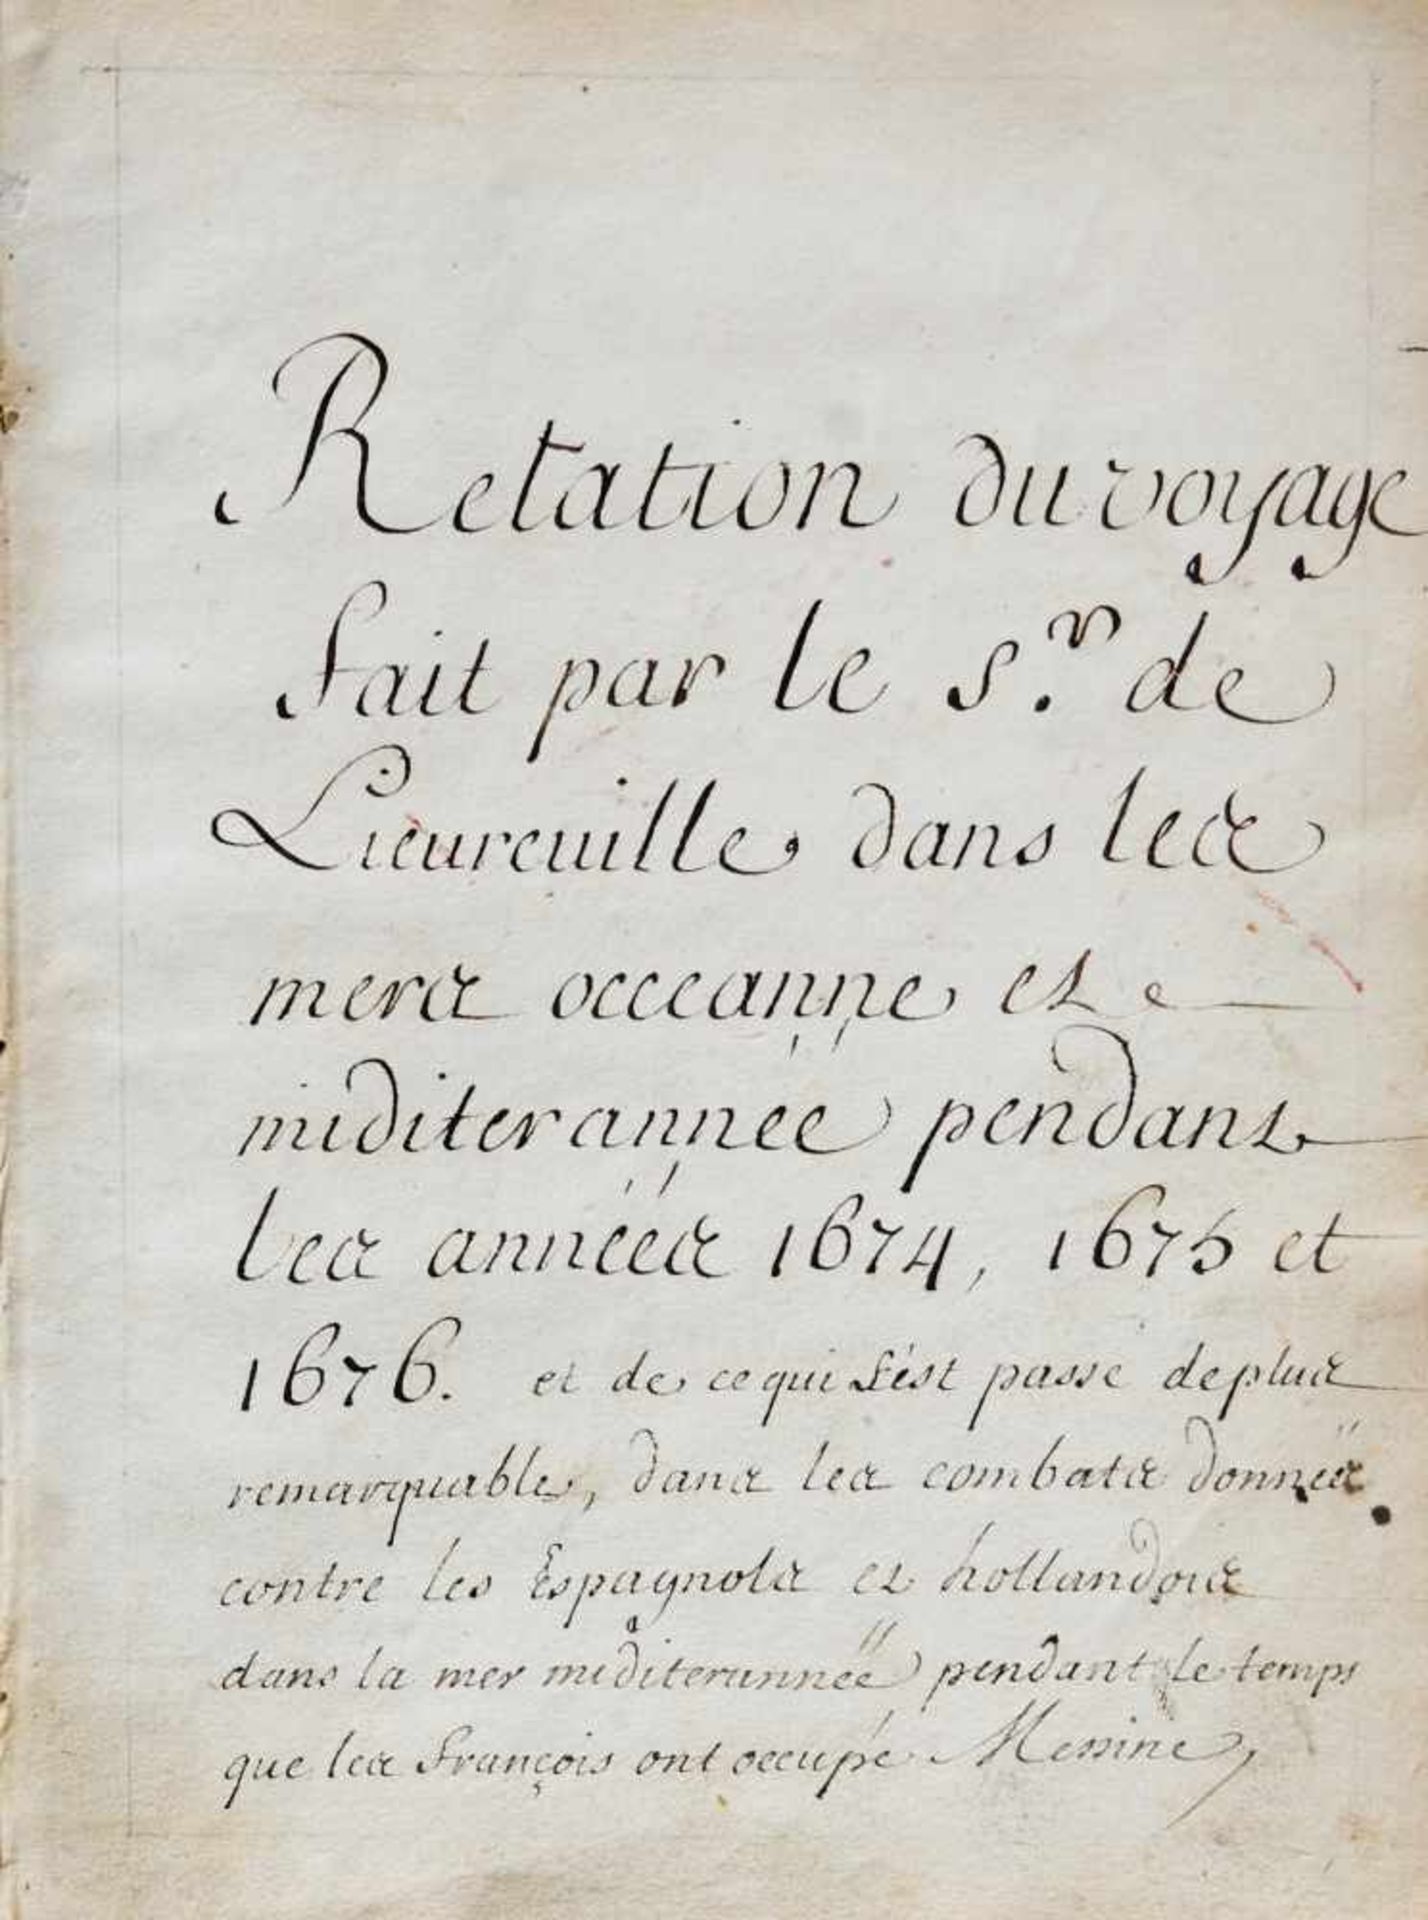 Relation du voyage
fait par le S.r de
Lieureuille dans les
mers occeanne et
miditerannée pendant
les années 1674, 1675 et
1676. et de ce qui s'est passé de plus
remarquable, dans les combats donnéës
contre les Espagnols et hollandois
dans la mer miditerannéë pendant le temps
que les François ont occupé Messine,